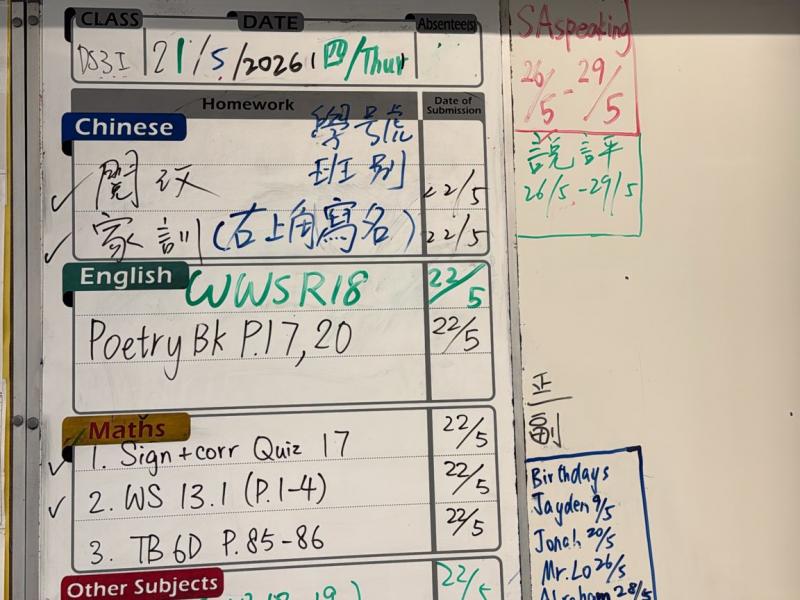 CLASS DATE Absentee(s)
21/5/2026 四/Thur
Homework Date of Submission
Chinese 學號
班別
閱 22/5
家訓 (右上角寫名) 22/5
English WWS R18 22/5
Poetry Bk P.17, 20 22/5
Maths
1. Sign + corr Quiz 17 22/5
2. WS 13.1 (P.1-4) 22/5
3. TB 6D P.85-86 22/5
Other Subjects 22/5
SA speaking
26/5 - 29/5
說評
26/5 - 29/5
正
副
Birthdays
Jayden 9/5
Jonah 20/5
Mr. Lo 26/5
Abraham 28/5